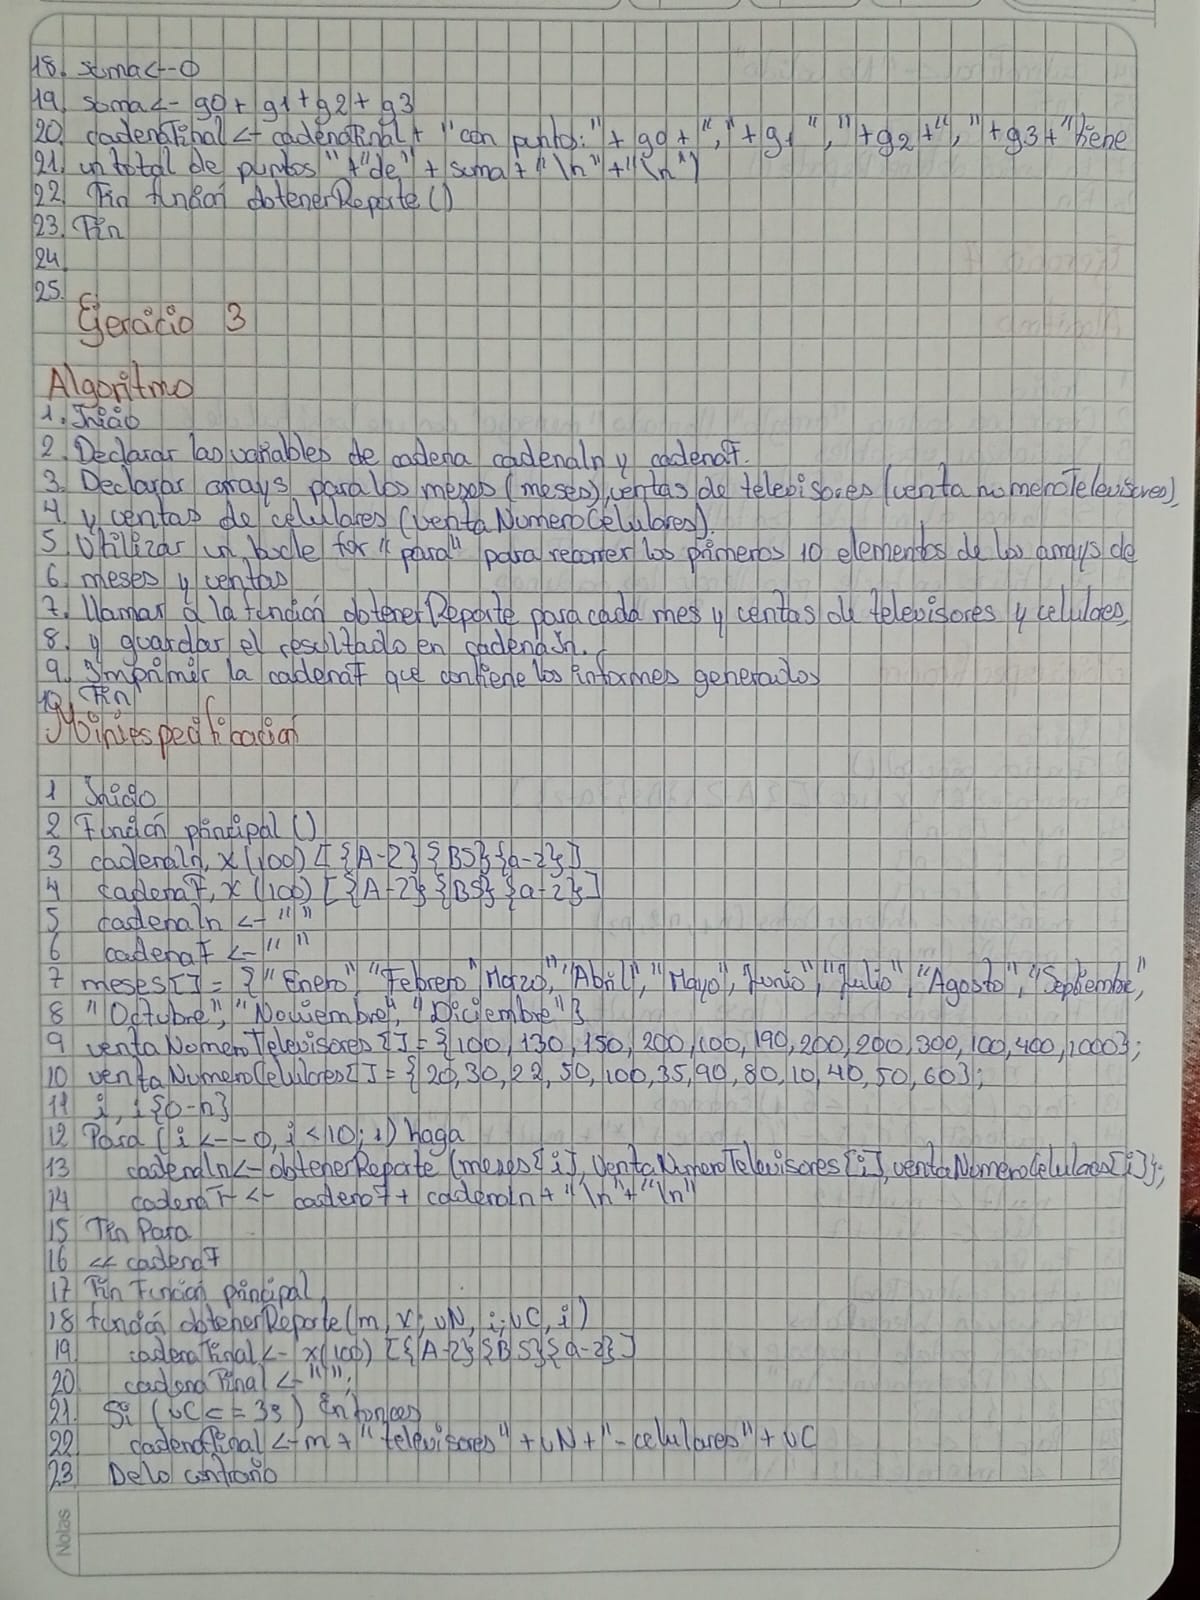 18. suma<-0
19. suma<- g0+ g1+g2+ g3
20. cadenaFinal <- cadenaFinal+ "con puntos:"+ g0+","+g1 ","+g2+","+g3+"tiene
21. un total de puntos "+"de" + suma+"\n"+"\n")
22. Fin función obtenerReporte()
23. Fin
24.
25.
Ejercicio 3
Algoritmo
1. Inicio
2. Declarar las variables de cadena cadenaIn y cadenaF.
3. Declarar arrays para los meses (meses), ventas de televisores (venta numeroTelevisores)
4 y ventas de celulares (ventaNumeroCelulares).
5 Utilizar un bucle for "para" para recorrer los primeros 10 elementos de los arrays de
6. meses y ventas
7. llamar a la función obtenerReporte para cada mes y ventas de televisores y celulares
8. y guardar el resultado en cadenaIn.
9. Imprimir la cadenaF que contiene los informes generados
10. Fin
Miniespecificación
1 Inicio
2 Función principal()
3 cadenaIn, x(100) [{A-Z}{BS}{a-z}]
4 cadenaF, x(100) [{A-Z}{BS}{a-z}]
5 cadenaIn <- " "
6 cadenaF <- " "
7 meses[] = {"Enero", "Febrero" Marzo", "Abril", "Mayo", Junio", "Julio", "Agosto", "Septiembre",
8 "Octubre", "Noviembre", "Diciembre"}
9 ventaNumeroTelevisores[] = {100, 130, 150, 200, 100, 190, 200, 200, 300, 100, 400, 1000};
10 ventaNumeroCelulares[] = {20, 30, 22, 50, 100, 35, 90, 80, 10, 40, 50, 60};
11 i, i{0-n}
12 Para (i <-- 0, i <10; 1) haga
13 cadenaIn<- obtenerReporte (meses[i], ventaNumeroTelevisores[i], ventaNumeroCelulaes[i]);
14 cadenaF <- cadenaF + cadenaIn + "\n"+"\n"
15 Fin Para
16 << cadenaF
17 Fin Función principal
18 función obtenerReporte(m, x; vN, i; vC, i)
19 cadenaFinal <- x(100) [{A-Z}{BS}{a-z}]
20 cadenaFinal <- " ";
21. Si (vC <= 39) Entonces
22 cadenaFinal <- m + "televisores" + vN + "- celulares" + vC
23 De lo contrario
Notas